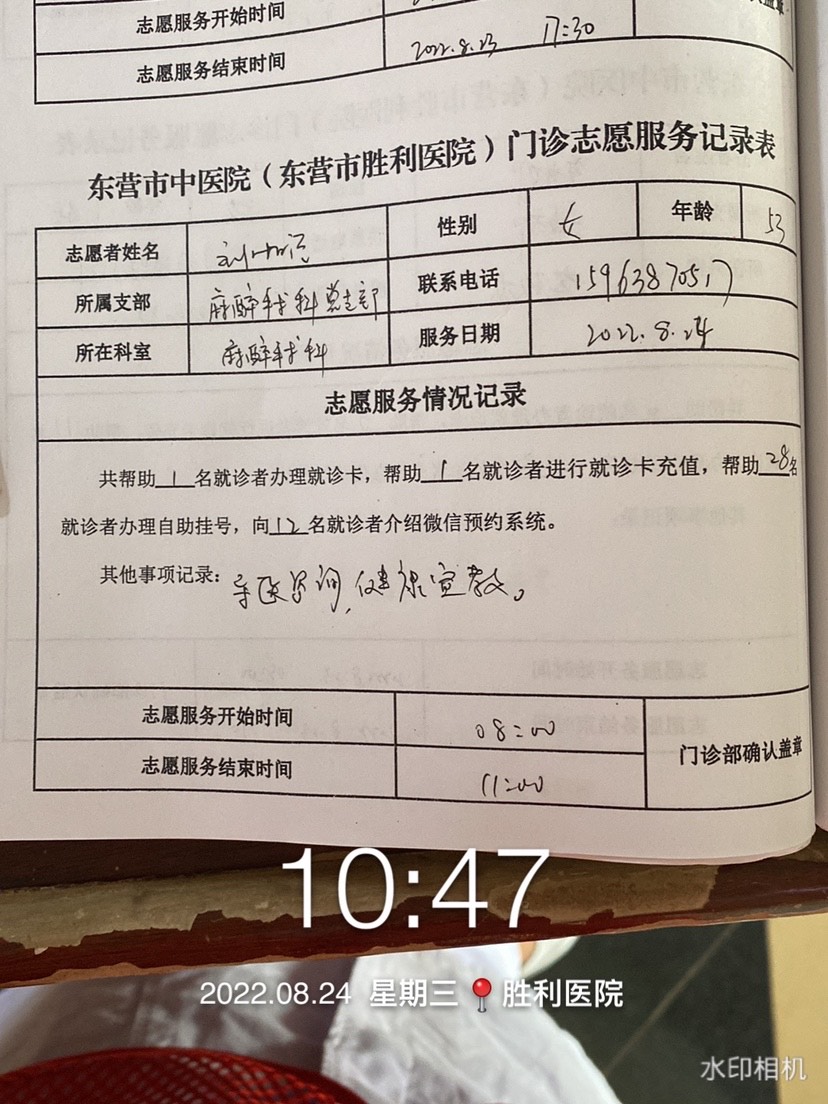 志愿服务开始时间
志愿服务结束时间 2022.8.23 17:30
东营市中医院（东营市胜利医院）门诊志愿服务记录表
志愿者姓名 性别 女 年龄 53
所属支部 麻醉手术科总支部 联系电话 15963870517
所在科室 麻醉手术科 服务日期 2022.8.24
志愿服务情况记录
共帮助1名就诊者办理就诊卡，帮助1名就诊者进行就诊卡充值，帮助28名
就诊者办理自助挂号，向12名就诊者介绍微信预约系统。
其他事项记录：导医咨询，健康宣教。
志愿服务开始时间 08:00
门诊部确认盖章
志愿服务结束时间 11:00
10:47
2022.08.24 星期三 胜利医院
水印相机